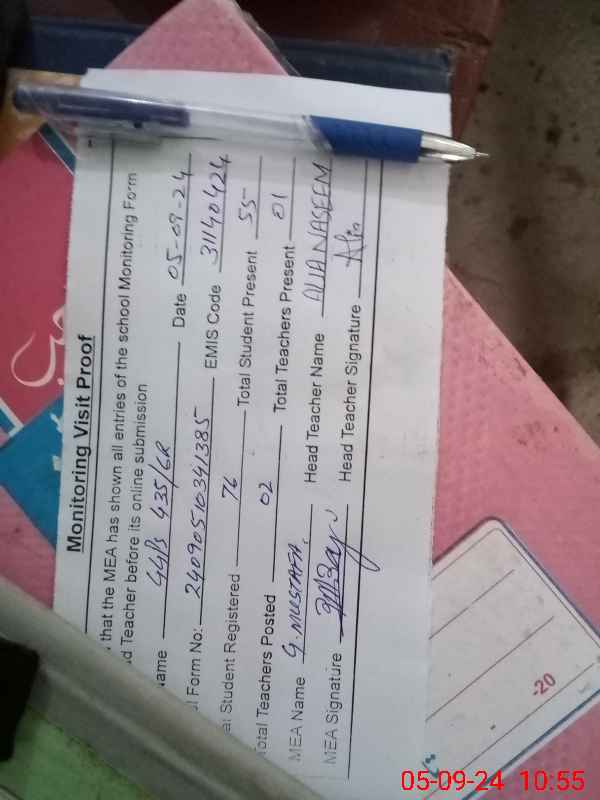 Monitoring Visit Proof
that the MEA has shown all entries of the school Monitoring Form
d Teacher before its online submission
ame GGPS 435/6R Date 05-09-24
l Form No: 24090510341385 EMIS Code 31140424
al Student Registered 76 Total Student Present 55
Total Teachers Posted 02 Total Teachers Present 01
MEA Name G. MUSTAFA. Head Teacher Name ALIA NASEEM
MEA Signature Head Teacher Signature Alia
-20
05-09-24 10:55